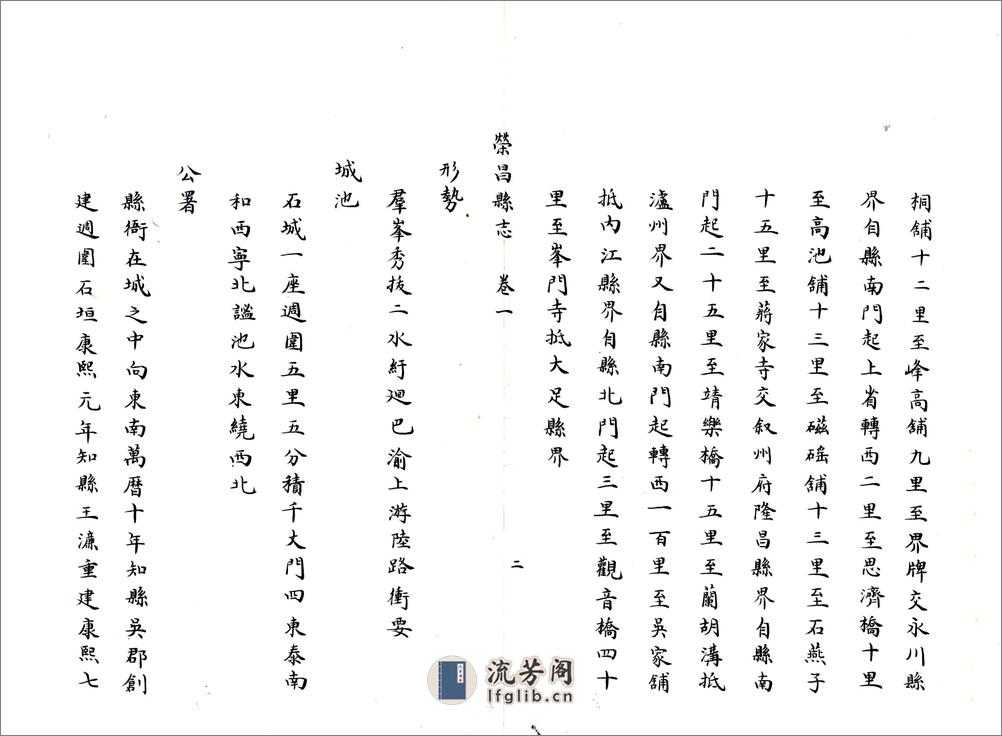 桐舖十二里至峰高舖九里至界牌交永川縣
界自縣南門起上省轉西二里至思濟橋十里
至高池舖十三里至磁磘舖十三里至石燕子
十五里至蔣家寺交叙州府隆昌縣界自縣南
門起二十五里至靖樂橋十五里至蘭胡溝抵
瀘州界又自縣南門起轉西一百里至吳家舖
抵內江縣界自縣北門起三里至觀音橋四十
里至峯門寺抵大足縣界
榮昌縣志 卷一 二
形勢
羣峯秀拔二水紆廻巴渝上游陸路衝要
城池
石城一座週圍五里五分積千丈門四東泰南
和西寧北謐池水東繞西北
公署
縣衙在城之中向東南萬曆十年知縣吳郡創
建週圍石垣康熙元年知縣王濂重建康熙七
流芳阁
lfglib.cn